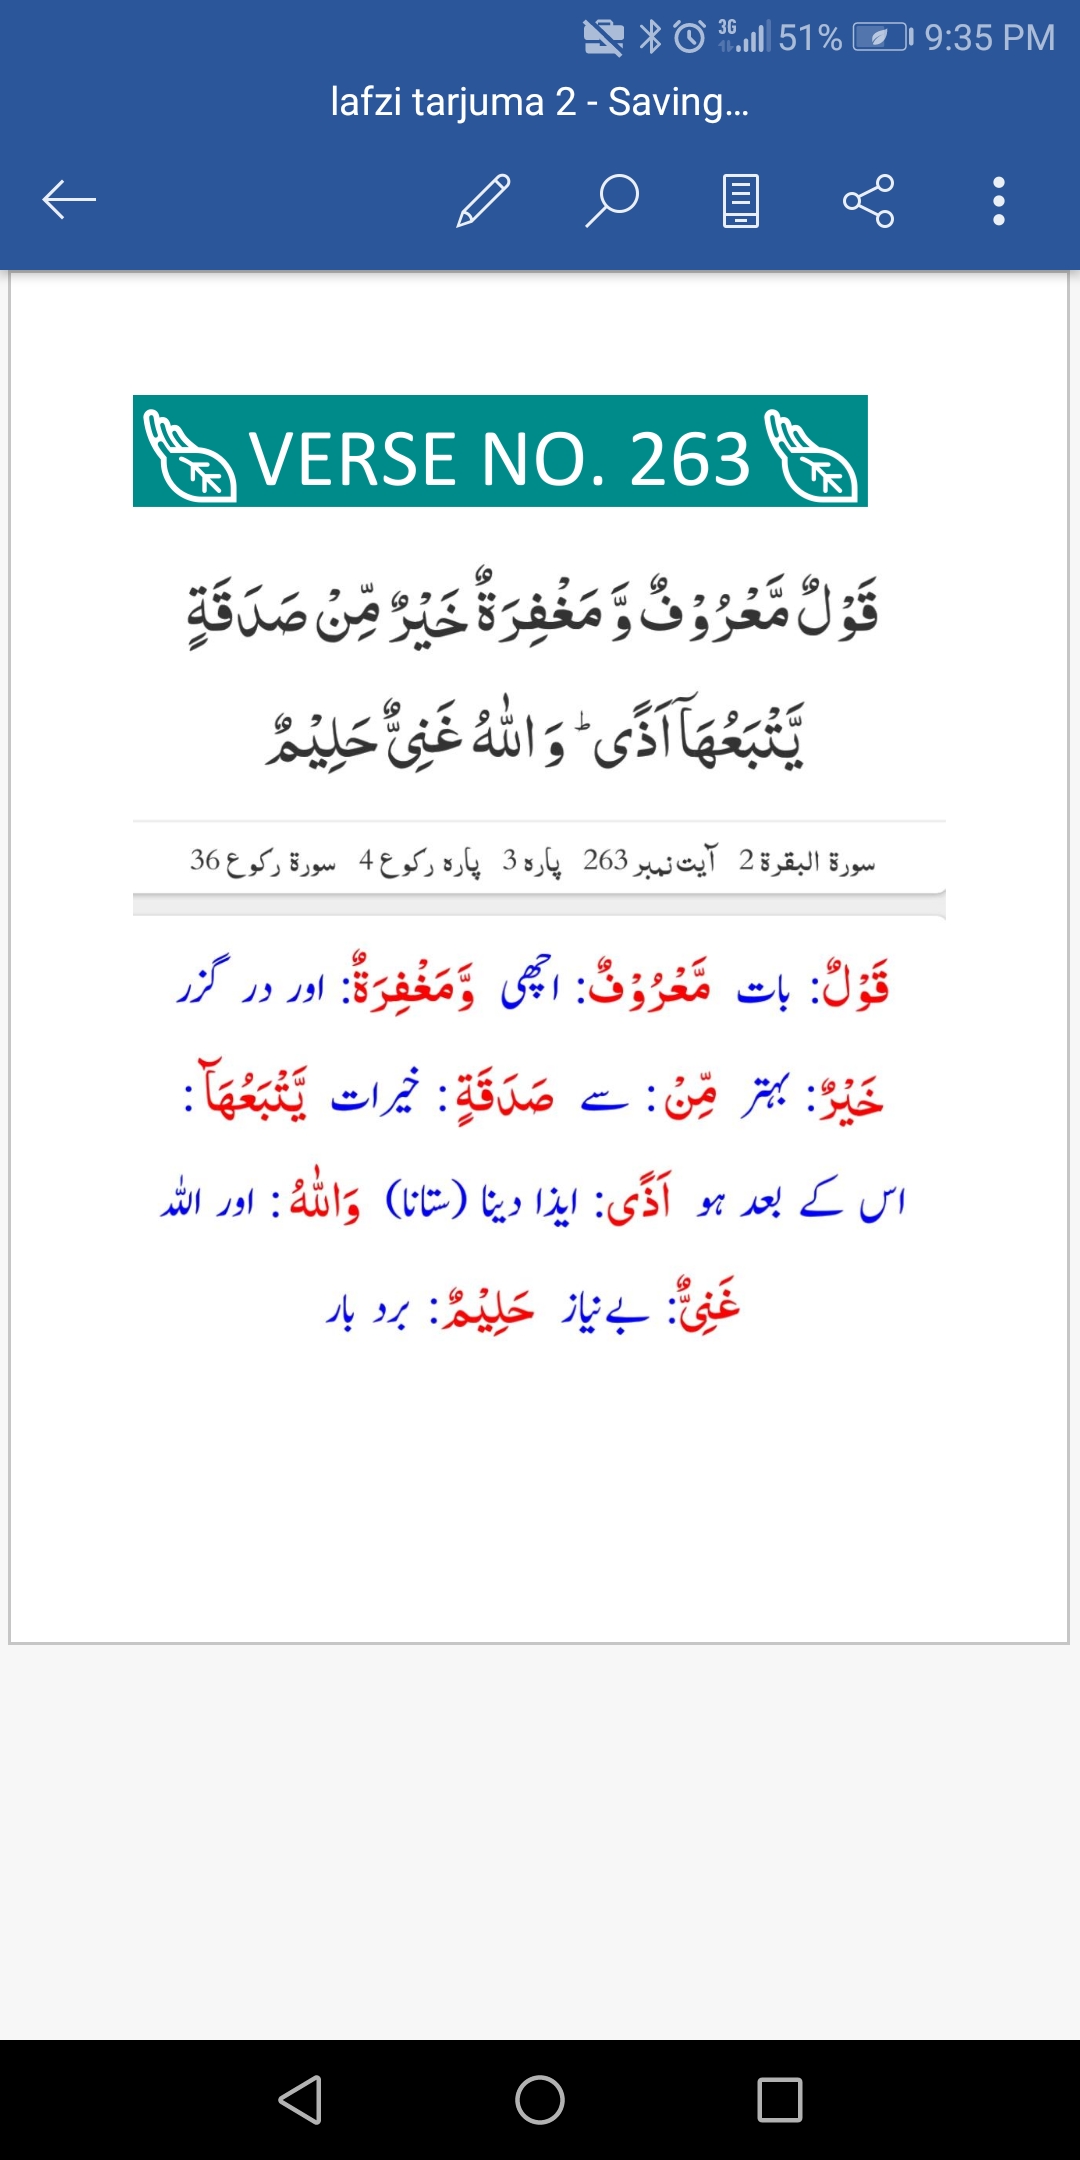 3G 51% 9:35 PM
lafzi tarjuma 2 - Saving...
VERSE NO. 263
قَوْلٌ مَّعْرُوْفٌ وَّ مَغْفِرَةٌ خَيْرٌ مِّنْ صَدَقَةٍ
يَّتْبَعُهَاۤ اَذًى ؕ وَ اللّٰهُ غَنِيٌّ حَلِيْمٌ
سورۃ البقرۃ 2 آیت نمبر 263 پارہ 3 پارہ رکوع 4 سورۃ رکوع 36
قَوْلٌ: بات مَّعْرُوْفٌ: اچھی وَّمَغْفِرَةٌ: اور در گزر
خَيْرٌ: بہتر مِّنْ: سے صَدَقَةٍ: خیرات يَّتْبَعُهَاۤ:
اس کے بعد ہو اَذًى: ایذا دینا (ستانا) وَاللّٰهُ: اور اللہ
غَنِيٌّ: بے نیاز حَلِيْمٌ: برد بار